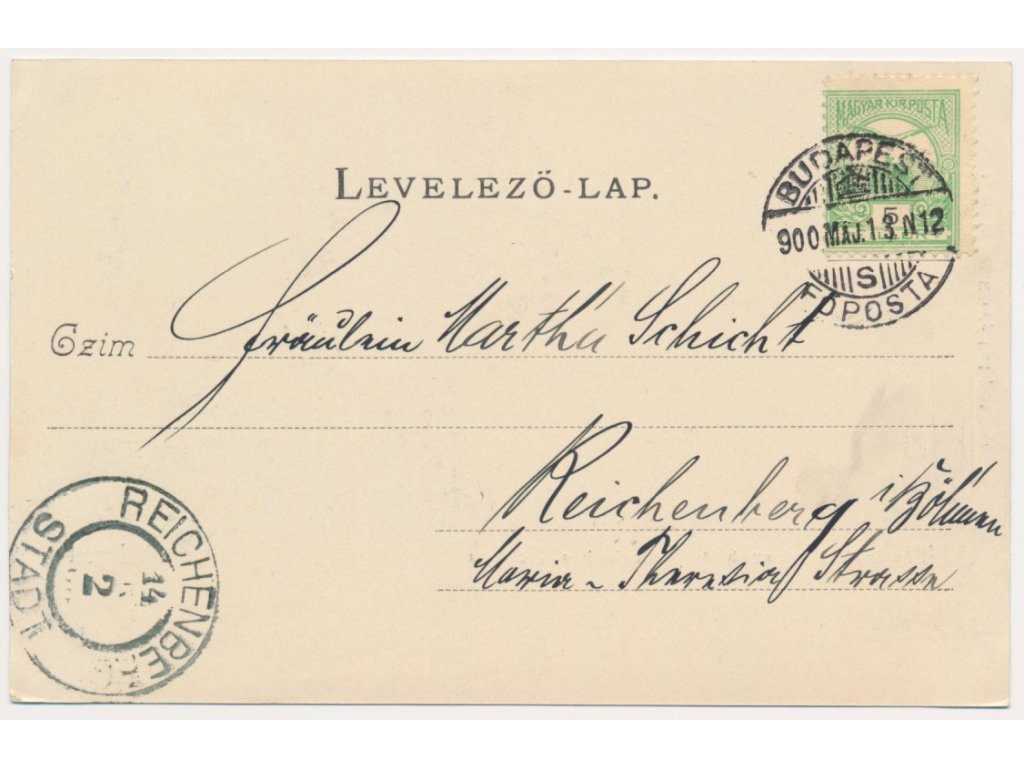 MAGYAR KIR. POSTA
5
LEVELEZŐ-LAP.
BUDAPEST
900 MÁJ. 13 N12
S
FŐPOSTA
Czim Fräulein Martha Schicht
Reichenberg i Böhmen
Maria-Theresia Strasse
REICHENBERG
STADT
14
2